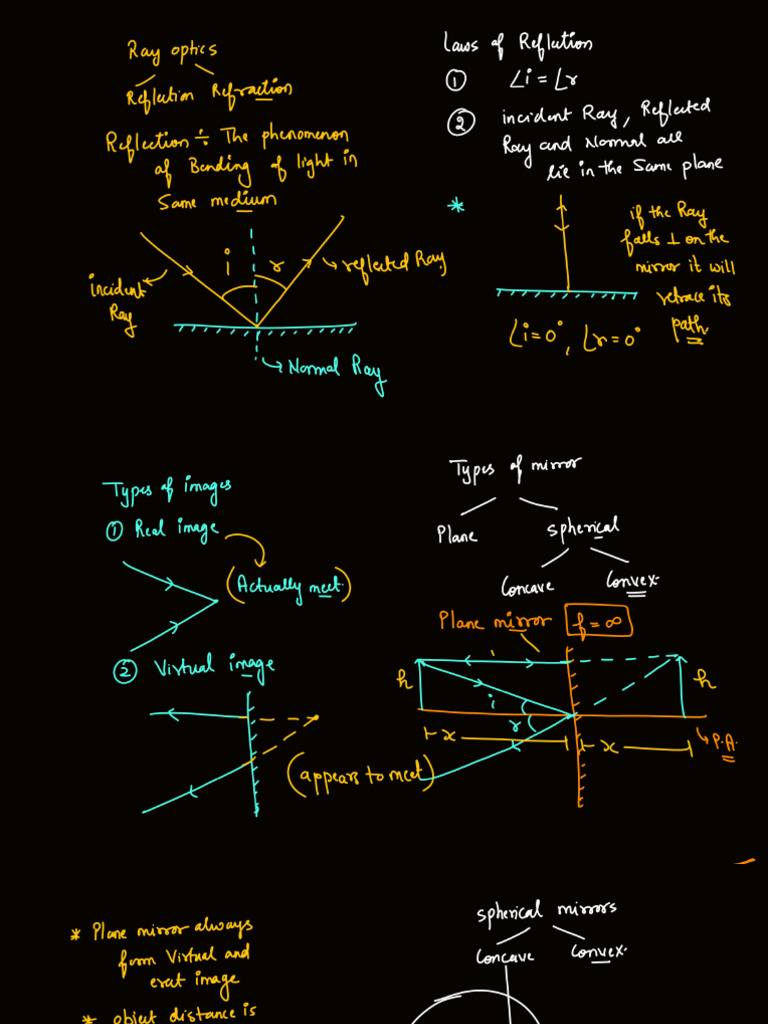 Ray optics
Reflection Refraction
Reflection ÷ The phenomenon
of Bending of light in
Same medium
incident
Ray
i
r
reflected Ray
Normal Ray
Laws of Reflection
① ∠i = ∠r
② incident Ray, Reflected
Ray and Normal all
lie in the Same plane
*
if the Ray
falls ⊥ on the
mirror it will
retrace its
path
∠i=0°, ∠r=0°
Types of images
① Real image
(Actually meet.)
② Virtual image
(appears to meet)
Types of mirror
Plane spherical
Concave Convex.
Plane mirror f = ∞
h
i
r
h
x
x
P.A.
* Plane mirror always
form Virtual and
erect image
* object distance is
spherical mirrors
Concave Convex.